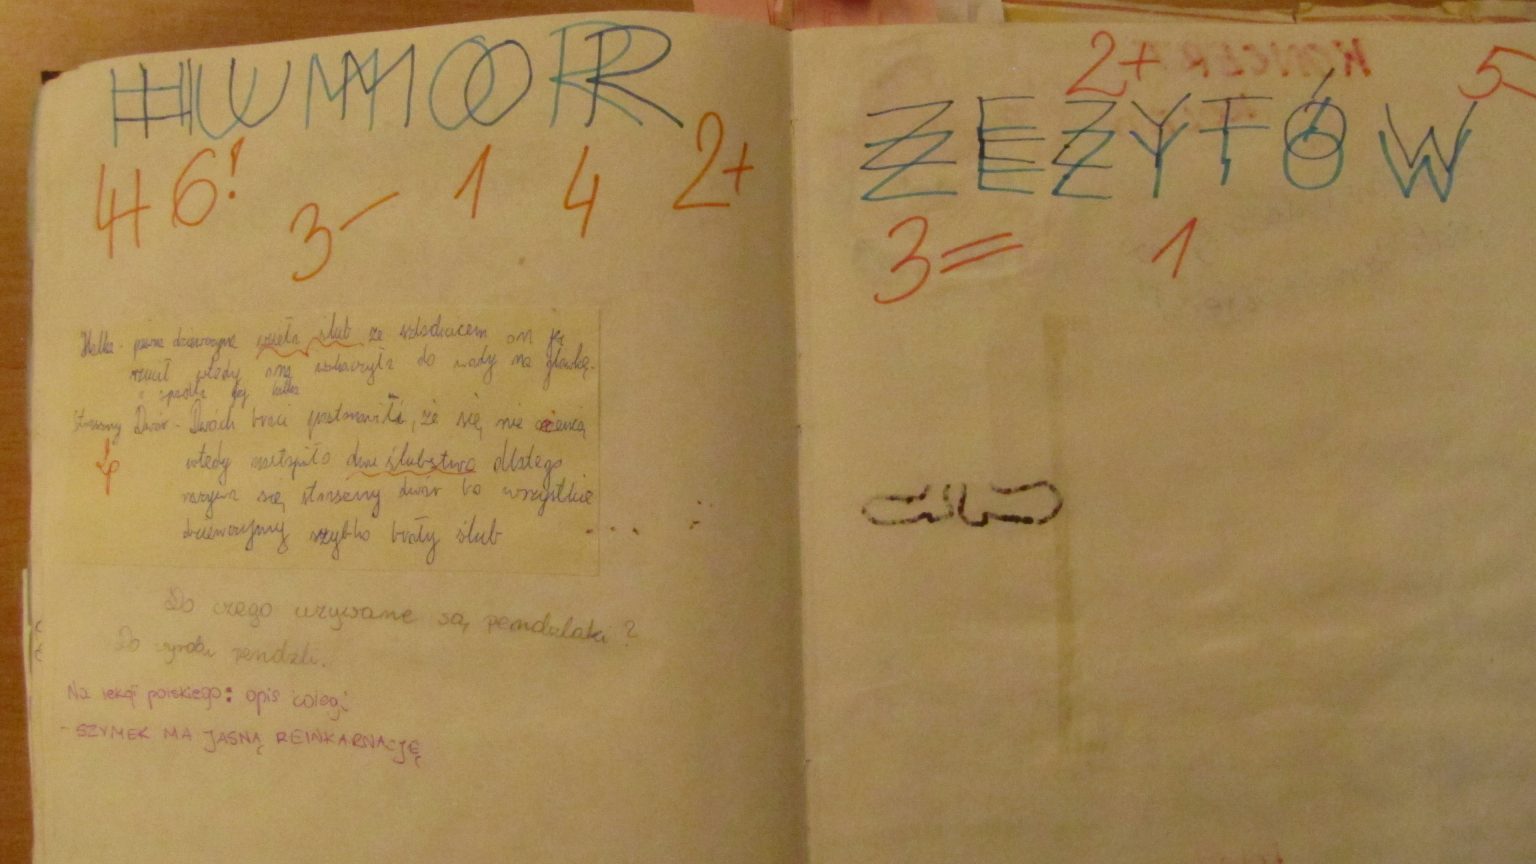 HUMOR
4+ 6! 3- 1 4 2+
Halka - pewna dziewczyna wzieła ślub ze szlachcicem on ją
rzucił wtedy ona wskoczyła do wody na głowkę.
i spadła jej halka
Straszny Dwór - Dwóch braci postanowiło, że się nie ożenią
wtedy nastąpiło dwa ślubstwa dlatego
nazywa się straszny dwór bo wszystkie
dziewczyny szybko brały ślub
Do czego używane są pendzlaki?
Do wyrobu pendzli.
Na lekcji polskiego: opis kolegi
- SZYMEK MA JASNĄ REINKARNACJĘ
2+ 5-
ZEZYTÓW
3= 1